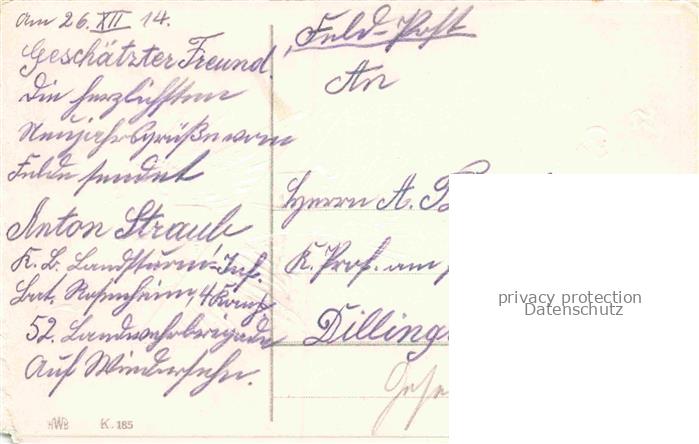 Am 26. XII 14.
Geschätzter Freund.
Die herzlichsten
Neujahrsgrüße vom
Felde sendet
Anton Straub
K. B. Landsturm-Inf.
Bat. Rosenheim, 4 Komp.
52. Landwehrbrigade
Auf Wiedersehn.
HWB K. 185
Feld-Post
An
Herrn A.
K. Prof. am
Dilling
privacy protection
Datenschutz